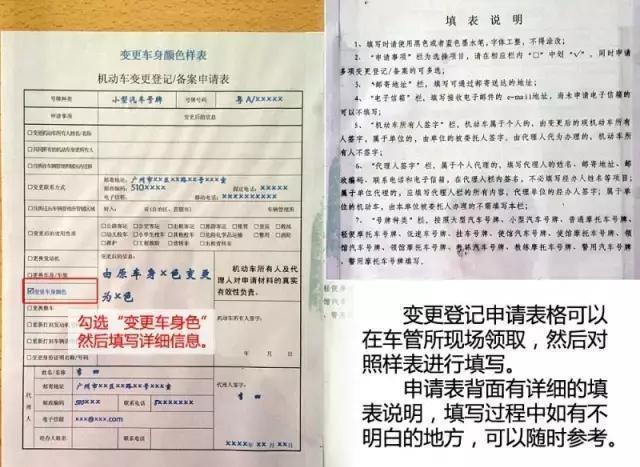 变更车身颜色样表
机动车变更登记/备案申请表
号牌种类 小型汽车号牌 号牌号码 粤A/×××××
变更后的信息
变更机动车所有人姓名/名称
共同所有的机动车变更所有人
变更联系方式
邮寄地址: 广州市××区××路××号×××室
邮政编码: 510×××
电子信箱:
固定电话:
移动电话:
变更后的使用性质
公路客运 公交客运 出租客运 旅游客运
幼儿校车 小学生校车 其他校车
救护 工程救险
更换发动机
更换车身/车架
变更车身颜色
更换整车
由原车身×色变更
为×色
机动车所有人及代
理人对申请材料的真实
有效性负责。
机动车所有人签字:
年 月 日
勾选“变更车身色”
然后填写详细信息。
变更身份证明名称/号码
代理人
姓名/名称 李四
邮寄地址 广州市××区××路××号×××室
邮政编码 510××× 联系电话
电子信箱 ×××@×××.com
经办人姓名 联系电话
代理人签字:
李四
××××年××月××日
填 表 说 明
1、填写时请使用黑色或者蓝色墨水笔,字体工整,不得涂改;
2、“申请事项”栏为选择项目,请在相应栏内“□”中划“√”,同时申请
多项变更登记/备案的可多选;
3、“邮寄地址”栏,填写可通过邮寄送达的地址;
4、“电子信箱”栏,填写接收电子邮件的e-mail地址,尚未申请电子信箱的
可以不填写;
5、“机动车所有人签字”栏,机动车属于个人的,由变更后的现机动车所有
人签字,属于单位的,由单位的被委托人签字。由代理人代为办理的,机动车所有
人不签字;
6、“代理人签字”栏,属于个人代理的,填写代理人的姓名、邮寄地址、邮
政编码、联系电话和电子信箱,在代理人栏内签名,不必填写经办人姓名等项目;
属于单位代理的,应填写代理人的所有内容,代理单位的经办人签字。机动车属于
单位的,由本单位被委托人办理的不需填写本栏;
7、“号牌种类”栏,按照大型汽车号牌、小型汽车号牌、普通摩托车号牌、
轻便摩托车号牌、低速车号牌、挂车号牌、使馆汽车号牌、使馆摩托车号牌、领馆
汽车号牌、领馆摩托车号牌、教练汽车号牌、教练摩托车号牌、警用汽车号牌、
警用摩托车号牌填写。
变更登记申请表格可以
在车管所现场领取,然后对
照样表进行填写。
申请表背面有详细的填
表说明,填写过程中如有不
明白的地方,可以随时参考。